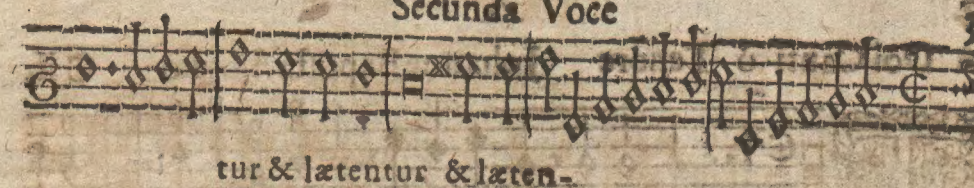 Secunda Voce
tur & lætentur & læten-